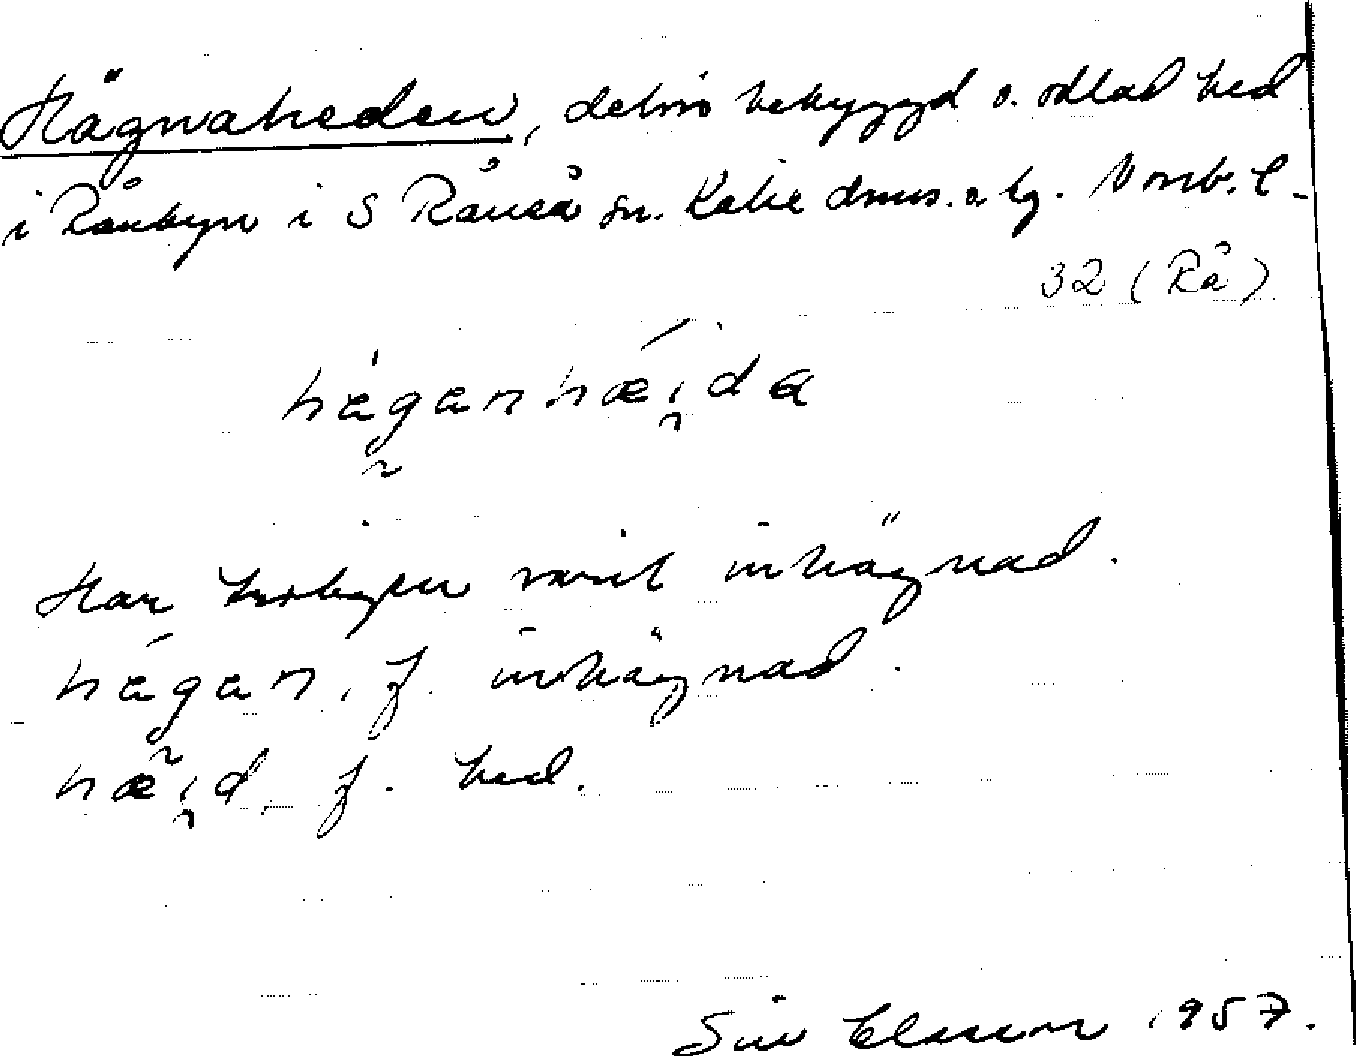 Hägnaheden, delvis bebyggd o. odlad hed
i Rånbyn i S Råneå sn. Kalix dmus. o lg. Norrb. l-
32 (Rå)
hąganhæi̯da
Har troligen varit inhägnad.
hągan, f. inhägnad.
hæi̯d, f. hed.
Siv 1957.